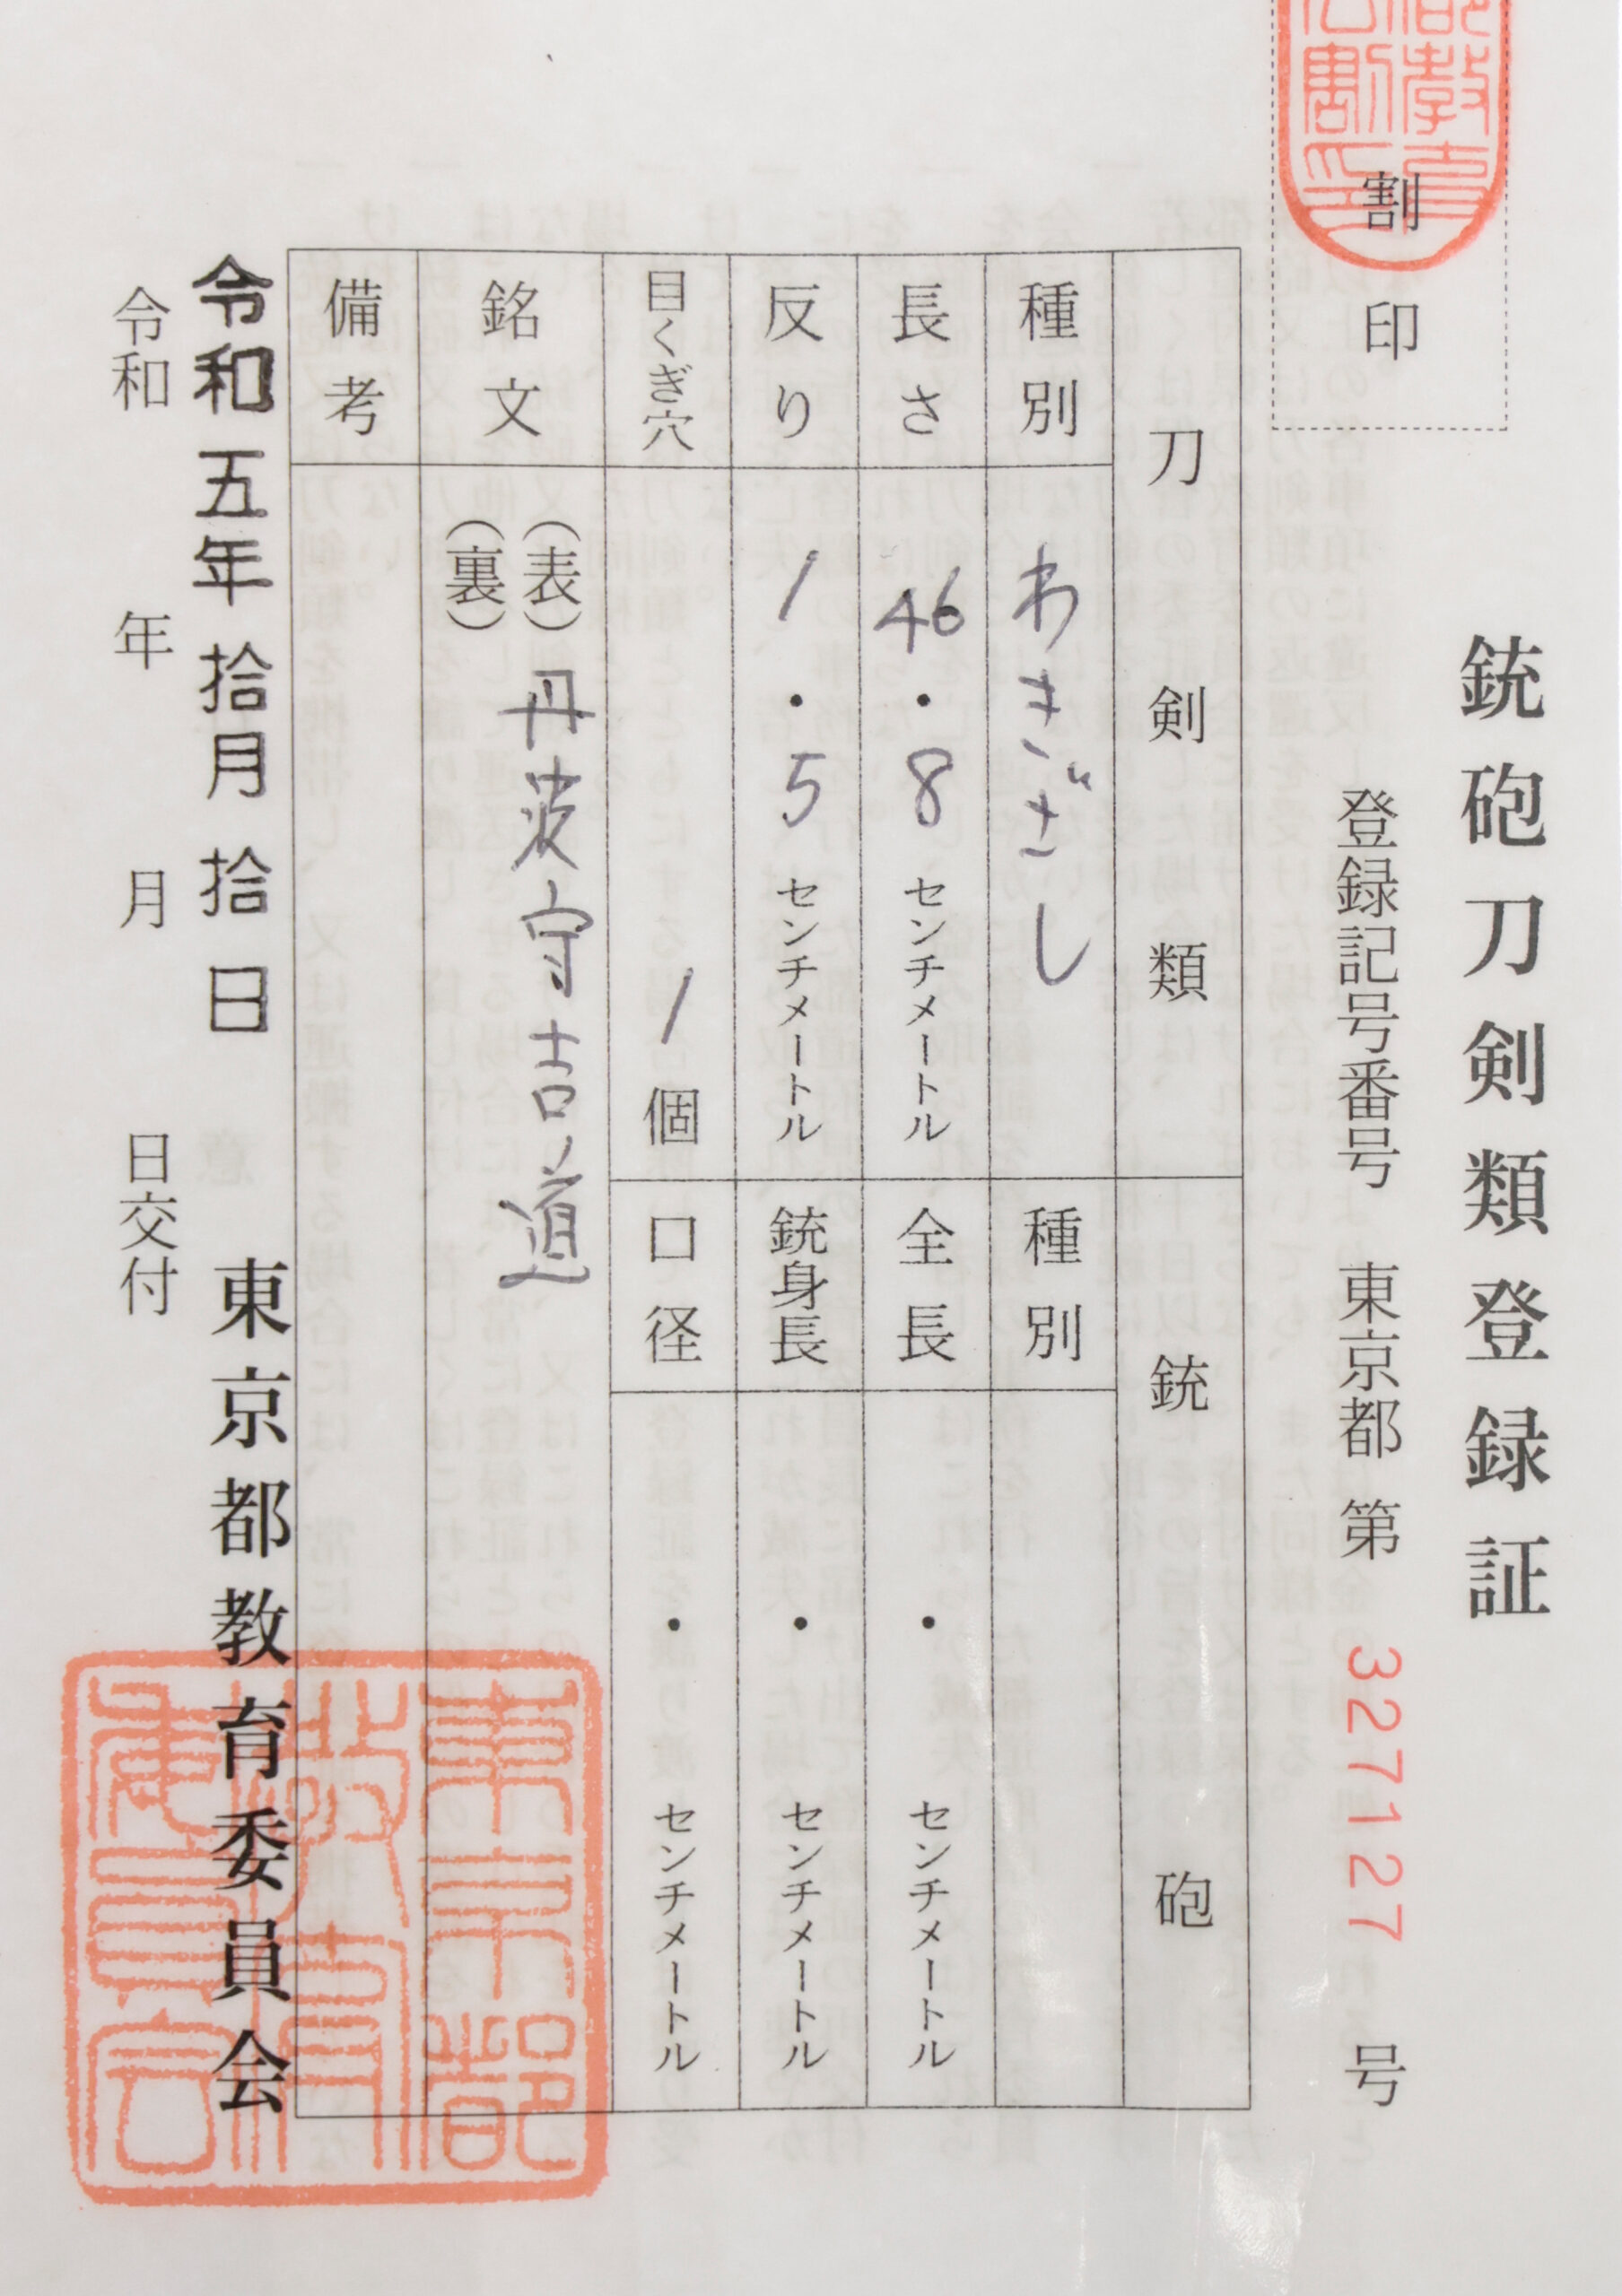 銃砲刀剣類登録証
割印
登録記号番号 東京都 第 327127 号
刀剣類
種別 わきざし
長さ 46・8 センチメートル
反り 1・5 センチメートル
目くぎ穴 1個
銃砲
種別
全長 ・ センチメートル
銃身長 ・ センチメートル
口径 ・ センチメートル
銘文 (表) 丹波守吉道
(裏)
備考
令和五年拾月拾日
東京都教育委員会
令和 年 月 日交付
東京都教育委員会